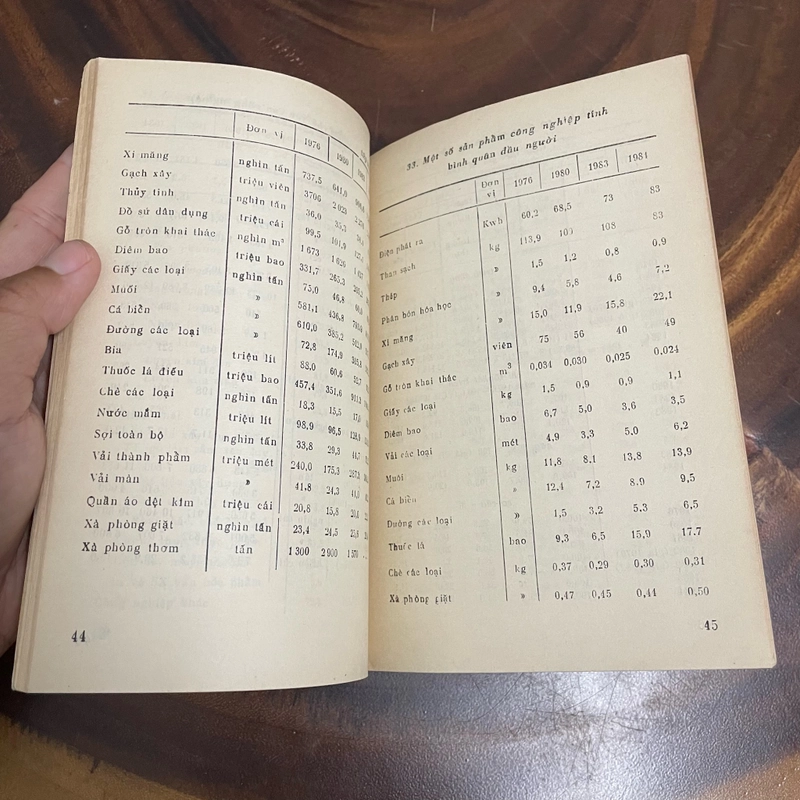 Đơn vị 1976 1980
Xi măng nghìn tấn 737,5 641,0
Gạch xây triệu viên 3706 2 023
Thủy tinh nghìn tấn 36,0 35,3
Đồ sứ dân dụng triệu cái 99,5 101,9
Gỗ tròn khai thác nghìn m³ 1 673 1 626
Diêm bao triệu bao 331,7 265,3
Giấy các loại nghìn tấn 75,0 46,8
Muối » 581,1 436,8
Cá biển » 610,0 385,2
Đường các loại » 72,8 174,9
Bia triệu lít 88,0 60,6
Thuốc lá điếu triệu bao 457,4 351,6
Chè các loại nghìn tấn 18,3 15,5
Nước mắm triệu lít 98,9 96,5
Sợi toàn bộ nghìn tấn 33,8 29,3
Vải thành phẩm triệu mét 240,0 175,3
Vải màn » 41,8 24,3
Quần áo dệt kim triệu cái 20,8 15,8
Xà phòng giặt nghìn tấn 23,4 24,5
Xà phòng thơm tấn 1 300 2 900 1 570
44
33. Một số sản phẩm công nghiệp tính
bình quân đầu người
Đơn vị 1976 1980 1983 1984
Điện phát ra Kwh 60,2 68,5 73 83
Than sạch kg 113,9 107 108 83
Thép » 1,5 1,2 0,8 0,9
Phân bón hóa học » 9,4 5,8 4,6 7,2
Xi măng » 15,0 11,9 15,8 22,1
Gạch xây viên 75 56 40 49
Gỗ tròn khai thác m³ 0,034 0,030 0,025 0,024
Giấy các loại kg 1,5 0,9 0,9 1,1
Diêm bao bao 6,7 5,0 3,6 3,5
Vải các loại mét 4,9 3,3 5,0 6,2
Muối kg 11,8 8,1 13,8 13,9
Cá biển » 12,4 7,2 8,9 9,5
Đường các loại » 1,5 3,2 5,3 6,5
Thuốc lá bao 9,3 6,5 15,9 17,7
Chè các loại kg 0,37 0,29 0,30 0,31
Xà phòng giặt » 0,47 0,45 0,44 0,50
45